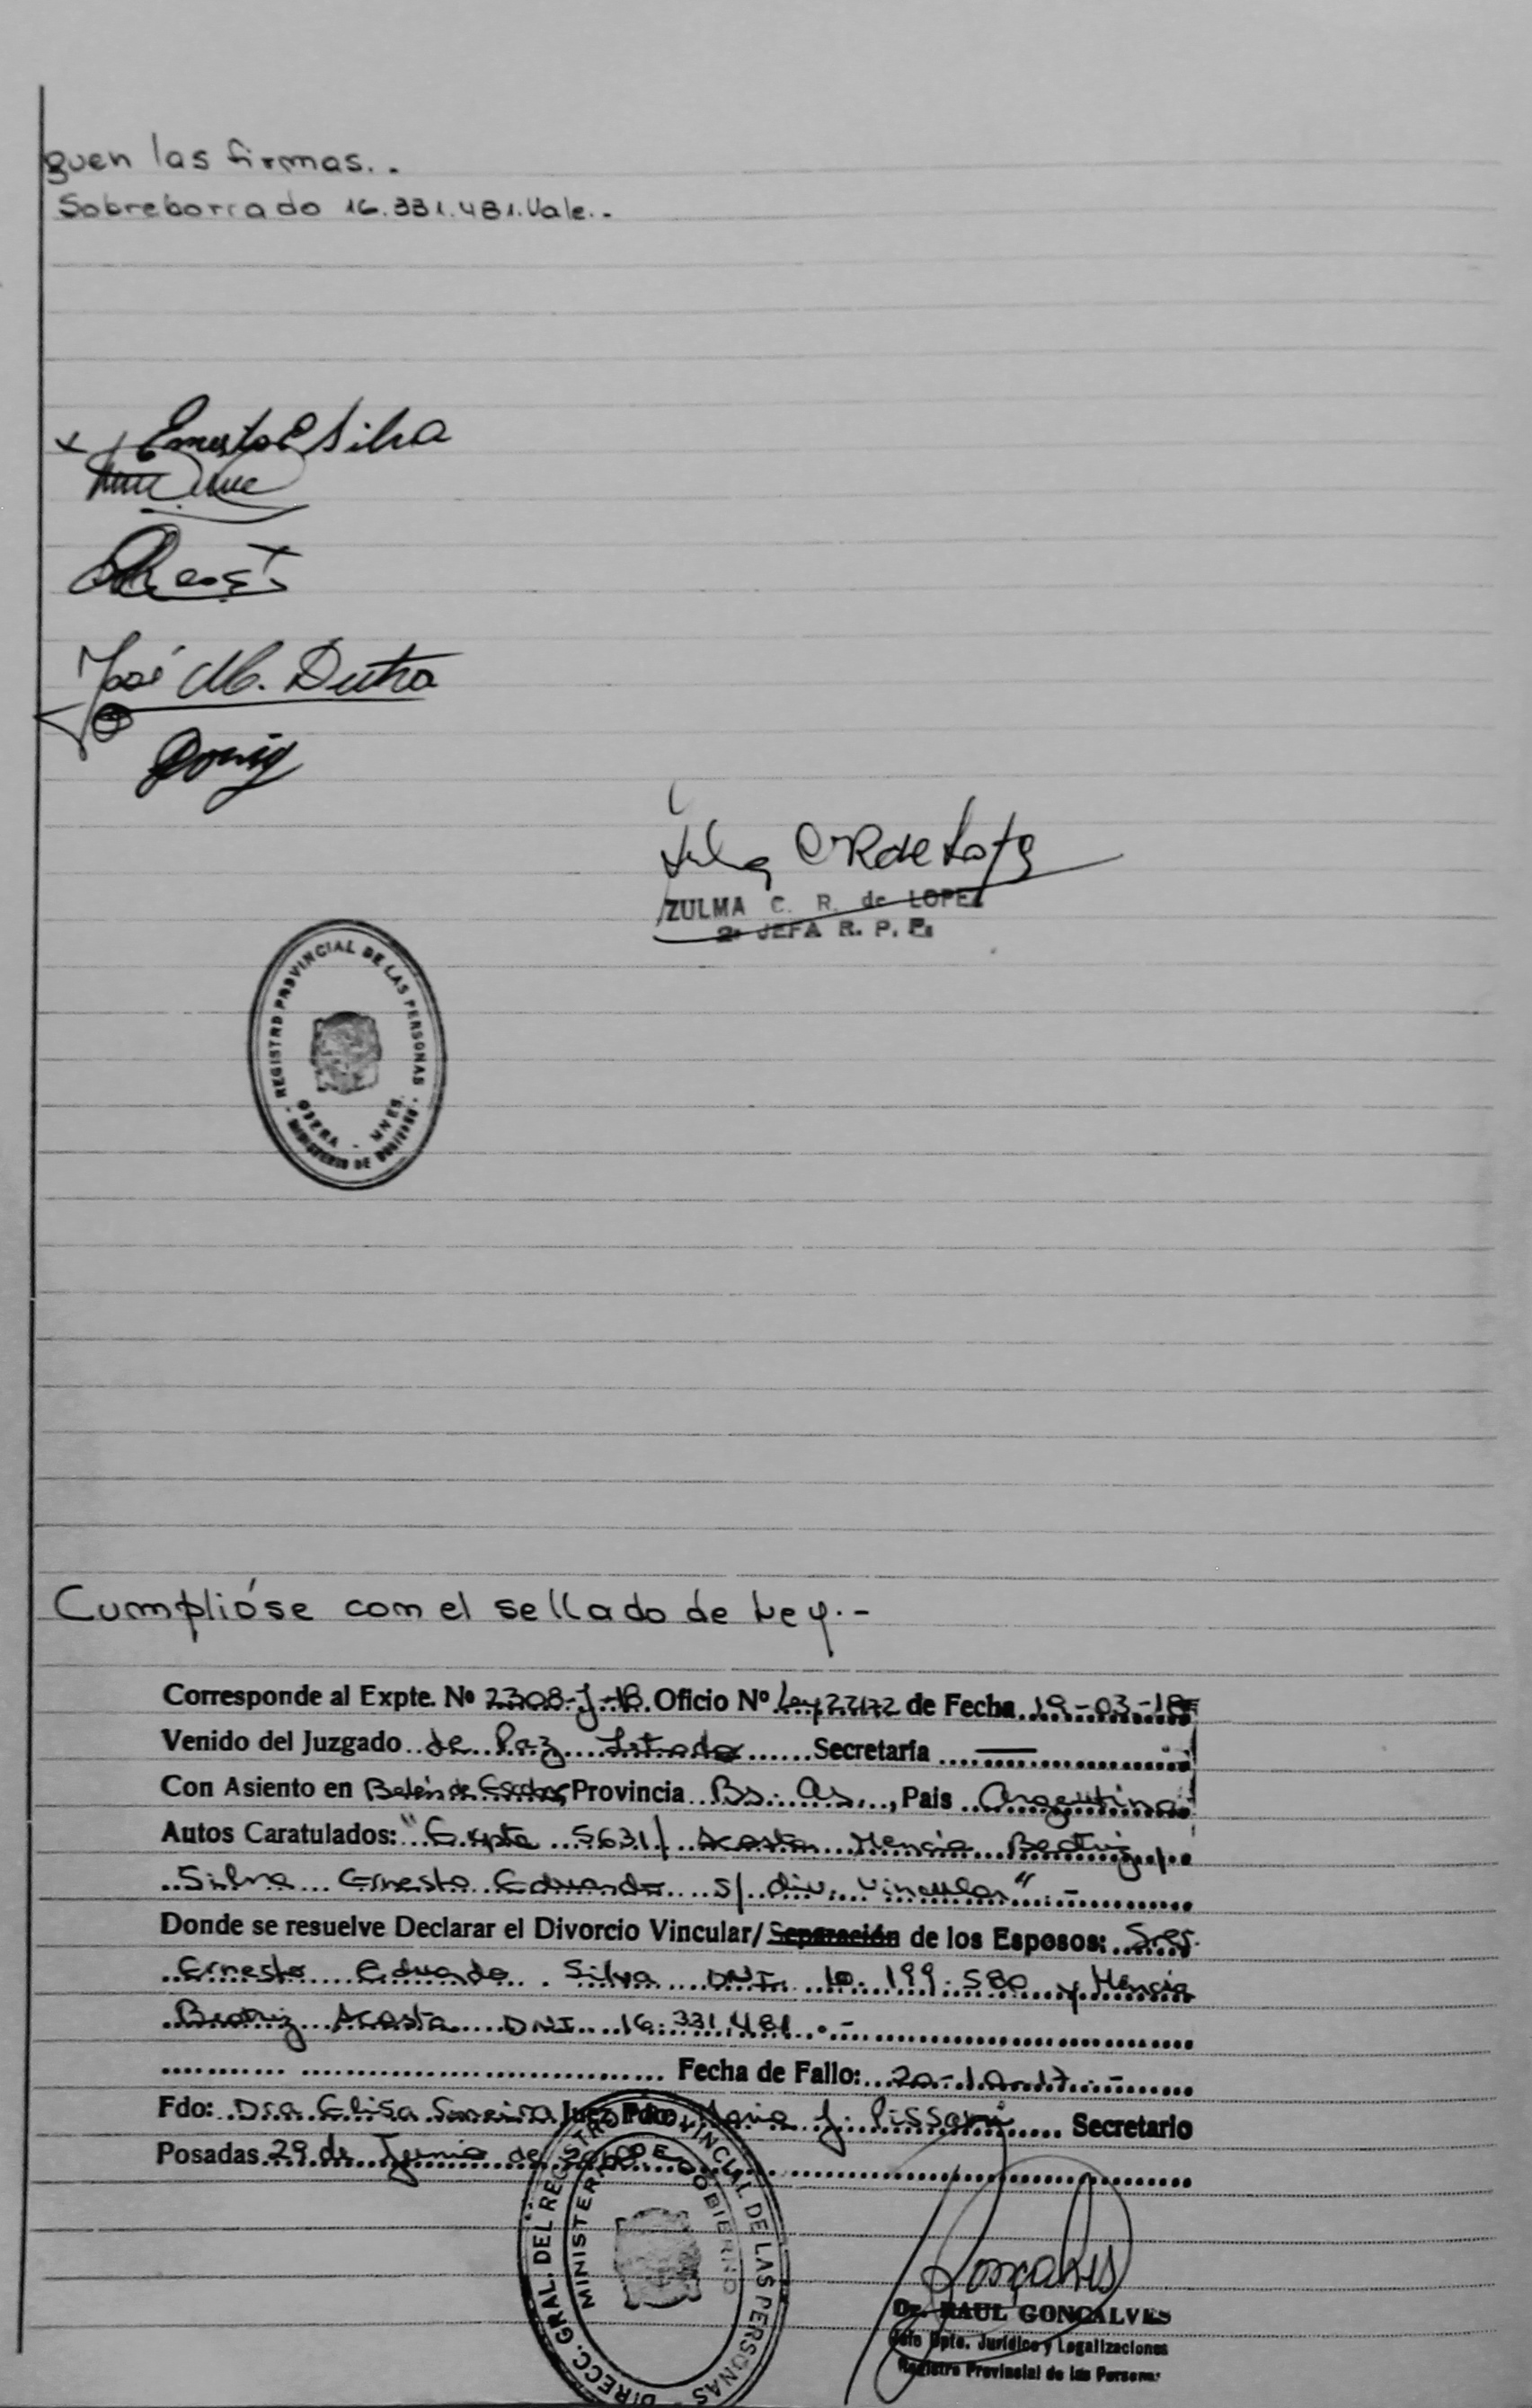 guen las firmas..
Sobreborrado 16.331.481.Vale..
Ernesto E Silva
José M. Dutra
ZULMA C. R. de LOPEZ
2º JEFA R. P. P.
REGISTRO PROVINCIAL DE LAS PERSONAS
OBERA - MNES.
MINISTERIO DE GOBIERNO
Cumplióse con el sellado de Ley.-
Corresponde al Expte. Nº 2308-J-18. Oficio Nº Ley 22172 de Fecha 19-03-18
Venido del Juzgado de Paz Letrado Secretaría
Con Asiento en Belén de Escobar, Provincia Bs. As., País Argentina
Autos Caratulados: "Expte 5631/ Acosta Mencia Beatriz
Silva Ernesto Eduardo s/ div. vincular".-
Donde se resuelve Declarar el Divorcio Vincular/Separación de los Esposos: Sres.
Ernesto Eduardo Silva DNI. 10.199.580 y Mencia
Beatriz Acosta DNI. 16.331.481.-
Fecha de Fallo: 20-10-17.-
Fdo: Dra Elisa Juez Fdo: Maria J. Pissani Secretario
Posadas 29 de Junio de
DIRECC. GRAL. DEL REGISTRO PROVINCIAL DE LAS PERSONAS
MINISTERIO DE GOBIERNO
Dr. RAUL GONCALVES
Jefe Dpto. Jurídico y Legalizaciones
Registro Provincial de las Personas